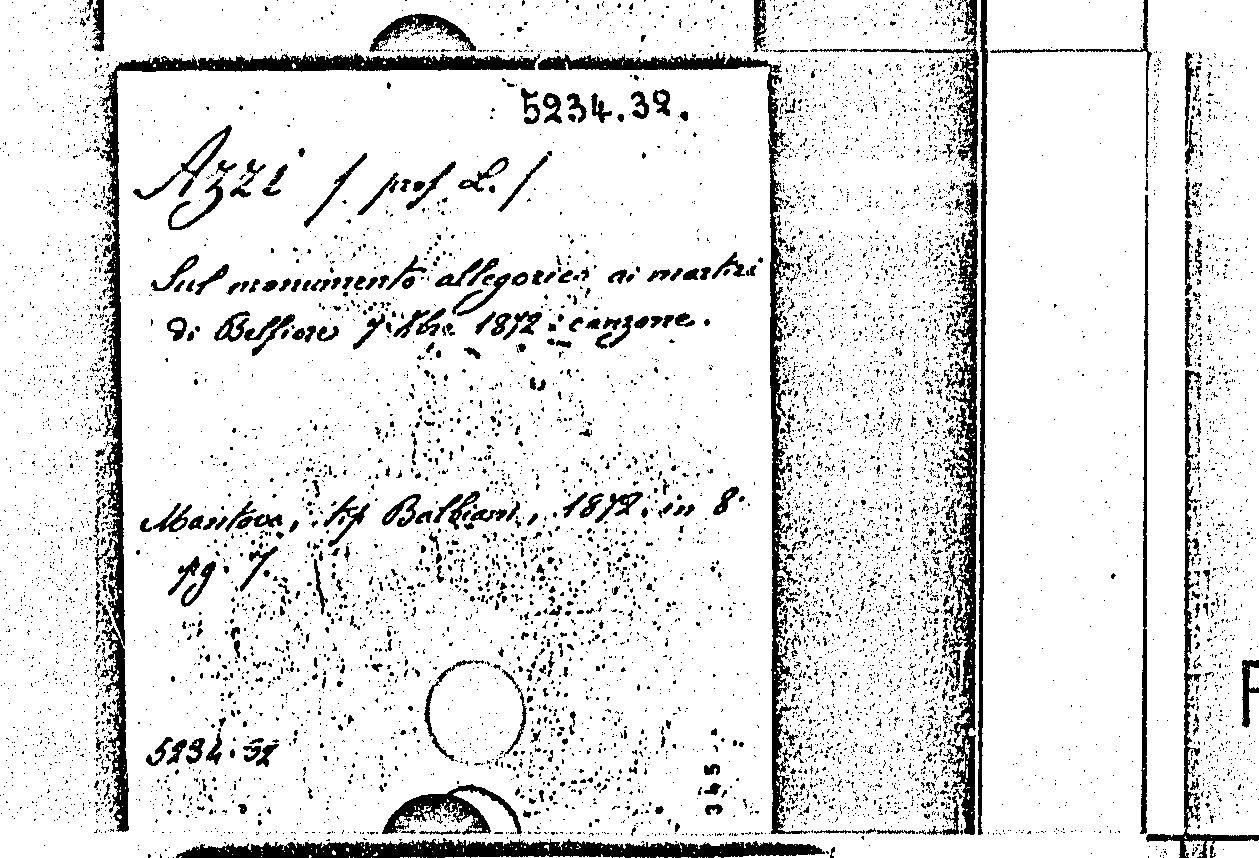 5234.32.
Azzi /. prof L. /
Sul monumento allegorico ai martiri
di Belfiore 7 Xbre 1872: canzone.
Mantova, tip Balbiani, 1872. in 8°
pg. 7.
5234.32
345
F